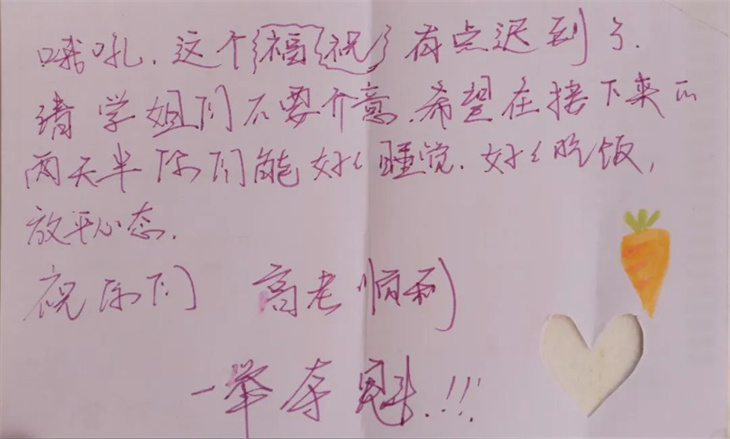 哦吼，这个福祝有点迟到了.
请学姐们不要介意.希望在接下来的
两天半你们能好々睡觉.好々吃饭，
放平心态.
祝你们 高考顺利
一举夺魁.!!!